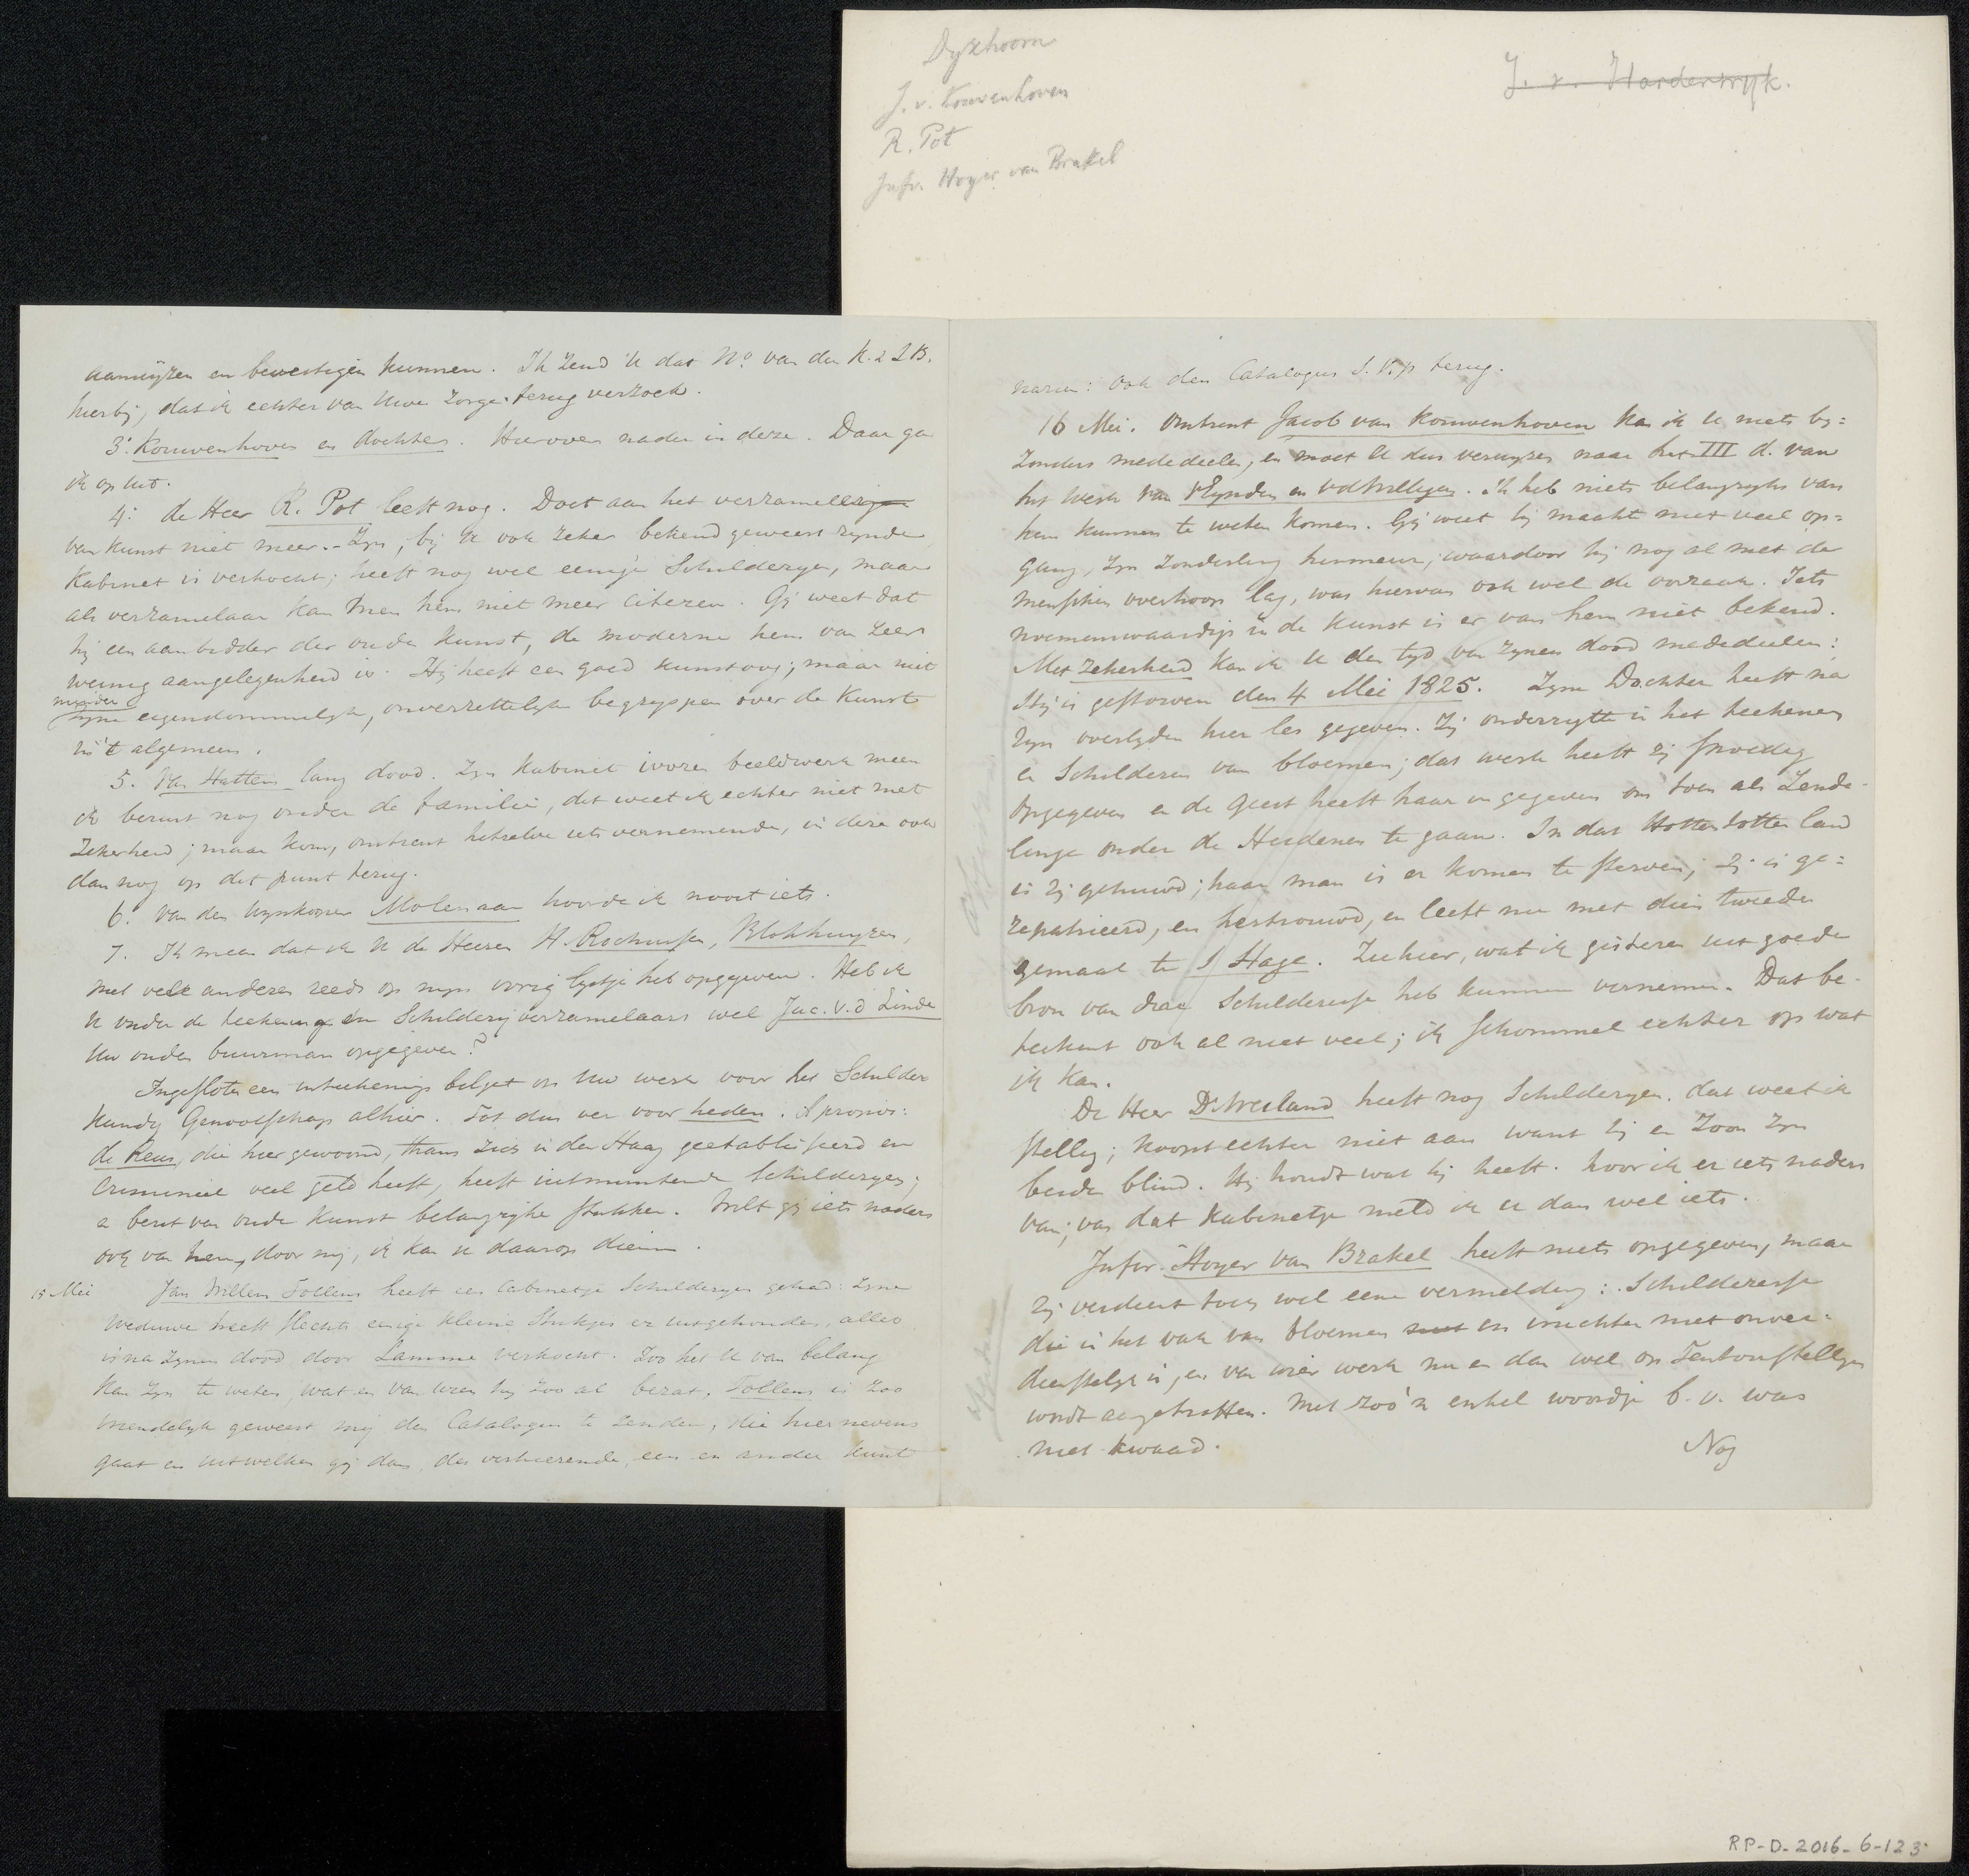 Dyxhoorn
J. v. Kouwenhoven
R. Pot
Jufr. Hoyer van Brakel
J. v. Harderwyk.
aanwyzen en bevestigen kunnen. Ik zend U dat No. van den K. & L B.
hierbij, dat ik echter van Uwe Zorge terug verzoek.
3: Kouwenhoven en dochter. Hierover nader in deze. Daar ga
ik op uit.
4: de Heer R. Pot leeft nog. Doet aan het verzamelen
van Kunst niet meer. - Zyn, bij U ook zeker bekend geweest zynde
Kabinet is verkocht; heeft nog wel eenige Schilderyen, maar
als verzamelaar kan men hem niet meer citeren. Gij weet dat
hij een aanbidder der oude Kunst, de moderne hem van zeer
weinig aangelegenheid is. Hij heeft een goed kunstoog; maar niet
minder
zyne eigendommelyke, onverzettelyke begrypen over de Kunst
in 't algemeen.
5. Van Hatten lang dood. Zyn Kabinet ivoren beeldwerk meen
ik berust nog onder de familie, dit weet ik echter niet met
Zekerheid; maar kom, omtrent hetzelve iets vernemende, in deze ook
dan nog op dit punt terug.
6. Van den Wynkoper Molenaar hoorde ik nooit iets.
7. Ik meen dat ik U de Heeren H Rochussen, Blokhuyzen,
met vele anderen reeds op myn vorig lystje heb opgegeven. Heb ik
U onder de teekening en Schilderyverzamelaars wel Jac. v. d Linde
Uw ouden buurman opgegeven?
Ingesloten een inteekenings biljet op Uw werk voor het Schilder
kundig Genootschap alhier. Tot dus ver voor heden. A propos:
de Reus, die hier gewoond, thans zich in den Haag geetablisseerd en
Crimineel veel geld heeft, heeft uitmuntende Schilderyen;
en bezit van oude Kunst belangryke stukken. Wilt gij iets naders
ook van hem, door mij, ik kan U daarop dienen.
15 Mei Jan Willem Tollens heeft een Cabinetje Schilderyen gehad: Zyne
Weduwe heeft slechts eenige kleine Stukjes er uitgehouden, alles
is na Zynen dood door Lamme verkocht. Zoo het U van belang
kan zyn te weten, wat en van wien hij zoo al bezat, Tollens is Zoo
vriendelyk geweest mij den Catalogus te zenden, die hiernevens
gaat en uit welken gij dan, des verkiezende, een en ander kunt
naren: Ook den Catalogus S. V. p terug.
16 Mei. Omtrent Jacob van Kouwenhoven kan ik U niets by=
Zonders mededeelen, en moet U dus verwyzen naar het III d. van
het werk van v Eynden en vd Willigen. Ik heb niets belangryks van
hem kunnen te weten komen. Gij weet hij maakte niet veel op=
gang, zyn zonderling humeur, waardoor hij nog al met de
menschen overhoop lag, was hiervan ook wel de oorzaak. Iets
noemenswaardigs in de kunst is er van hem niet bekend.
Met Zekerheid kan ik U den tyd van Zynen dood mededeelen:
Hij is gestorven den 4 Mei 1825. Zyne Dochter heeft na
Zyn overlyden hier les gegeven. Zij onderrigtte in het teekenen
en Schilderen van bloemen; dat werk heeft zij spoedig
opgegeven en de geest heeft haar in gegeven om toen als Zende-
linge onder de Heidenen te gaan. In dat Hottentotten land
is zij gehuwd; haar man is er komen te sterven; zij is ge=
repatrieerd, en hertrouwd, en leeft nu met dien tweeden
gemaal te s Hage. Ziehier, wat ik gisteren uit goede
bron van die Schilderesse heb kunnen vernemen. Dat be-
teekent ook al niet veel; ik schommel echter op wat
ik kan.
De Heer Dr. Weiland heeft nog Schilderyen. dat weet ik
stellig; koopt echter niet aan want hij en Zoon zyn
beide blind. Hij houdt wat hij heeft. hoor ik er iets naders
van; van dat Kabinetje meld ik U dan wel iets.
Jufvr. Hoyer van Brakel heeft niets opgegeven, maar
Zij verdient toch wel eene vermelding: Schilderesse
die in het vak van bloemen en vruchten niet onver=
dienstelyk is, en van wier werk nu en dan wel op Tentoonstellingen
wordt aangetroffen. Met zoo'n enkel woordje b. v. was
niet kwaad.
Nog
RP-D-2016-6-123